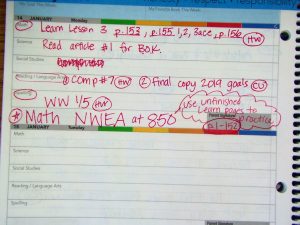 My Fantastic Book This Week:
14 JANUARY Monday
Learn Lesson 3 p.153, p.155 1,2, 3ace, p.156 HW
Science
Read article #1 for BOK.
Social Studies
Reading / Language Arts
① Comp #7 HW ② Final copy 2019 goals CU
WW 1/5 HW
use unfinished
Learn pages to
practice
p.1-152
Math NWEA at 850
JANUARY
Math
Science
Social Studies
Reading / Language Arts
Parent Signature